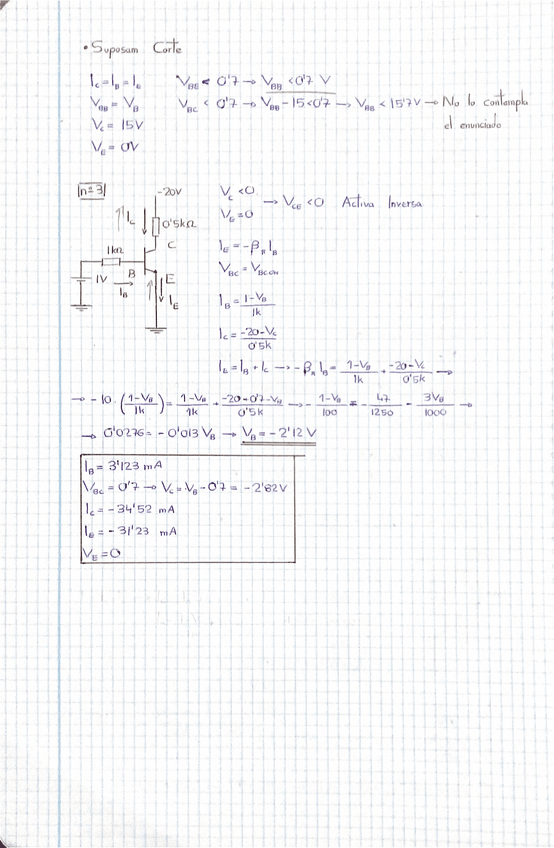 • Suposam Corte
I_C = I_B = I_E   V_BE < 0'7 → V_BB < 0'7 V
V_BB = V_B   V_BC < 0'7 → V_BB - 15 < 0'7 → V_BB < 15'7 V → No lo contempla
V_C = 15V   el enunciado
V_E = 0V
n=3
-20V
I_C   0'5kΩ
C
1kΩ
1V   B   E
I_B   I_E
V_C < 0
→ V_CE < 0   Activa Inversa
V_E = 0
I_E = -β_R I_B
V_BC = V_BCON
I_B = (1-V_B)/1k
I_C = (-20-V_C)/0'5k
I_E = I_B + I_C → -β_R I_B = (1-V_B)/1k + (-20-V_C)/0'5k →
→ -10 · ((1-V_B)/1k) = (1-V_B)/1k + (-20-0'7-V_B)/0'5k → - (1-V_B)/100 = - 47/1250 - 3V_B/1000 →
→ 0'0276 = -0'013 V_B → V_B = -2'12 V
I_B = 3'123 mA
V_BC = 0'7 → V_C = V_B - 0'7 = -2'82V
I_C = -34'52 mA
I_E = -31'23 mA
V_E = 0